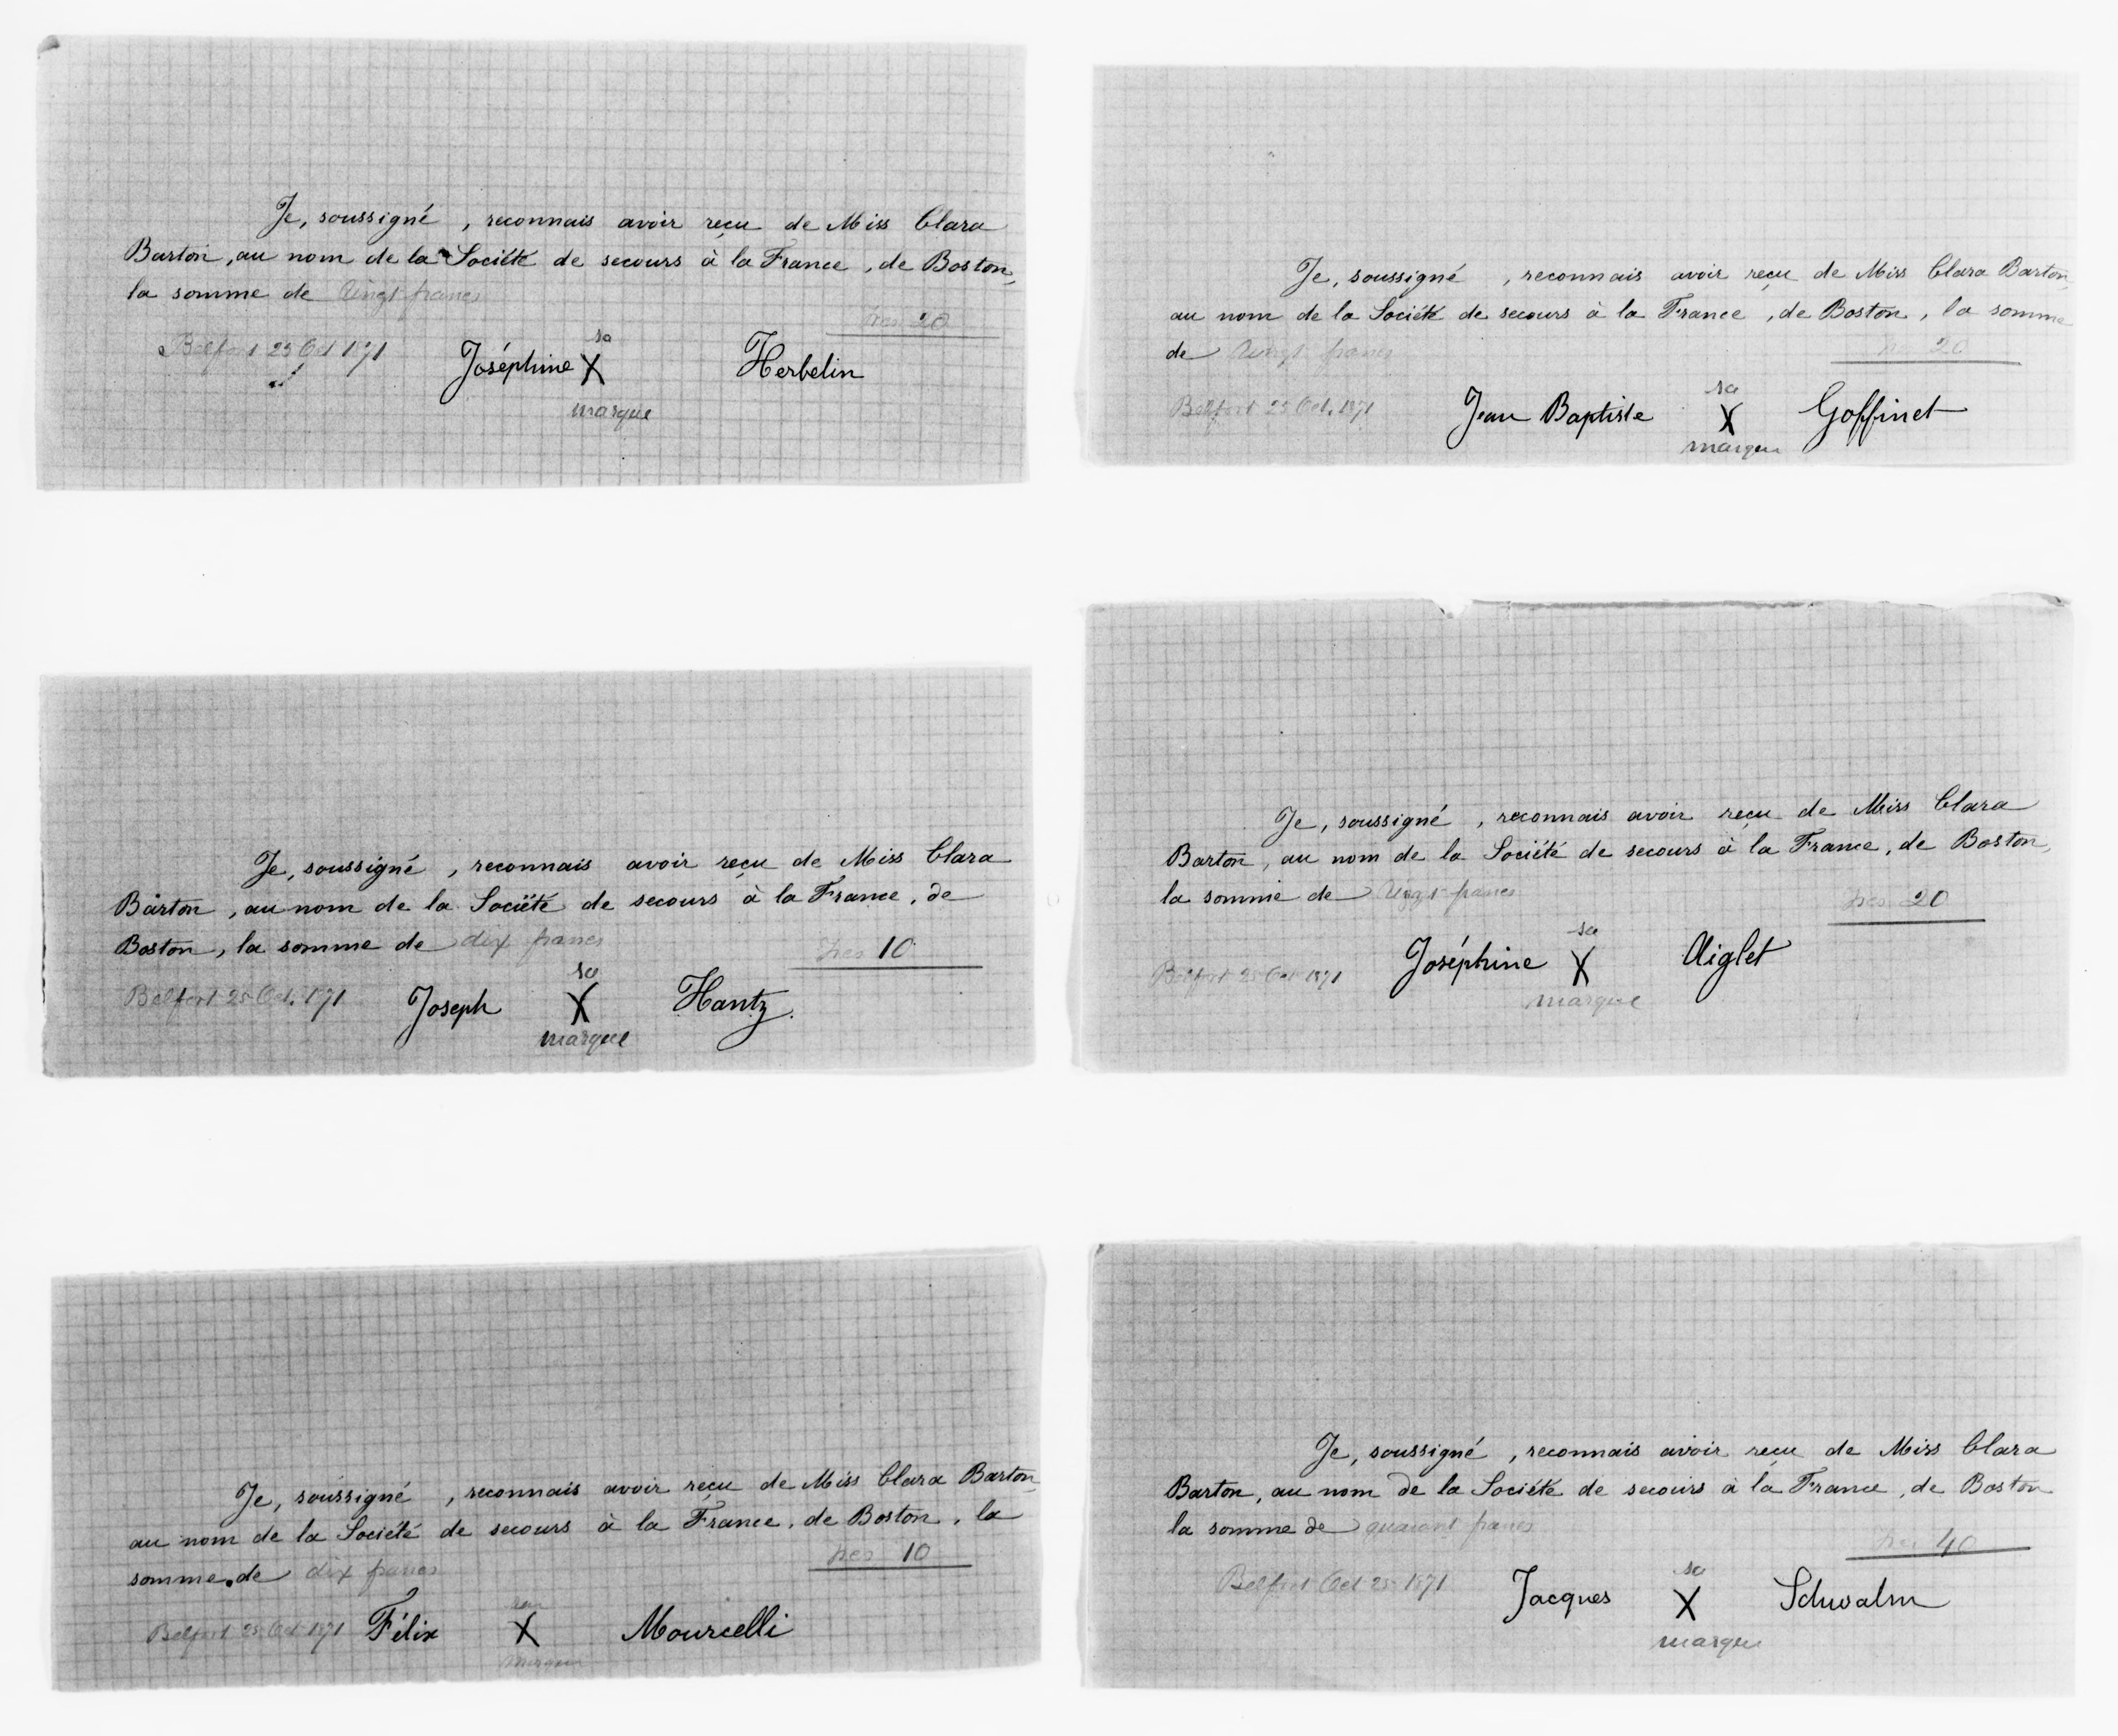 Je, soussigné , reconnais avoir reçu de Miss Clara
Barton, au nom de la Société de secours à la France, de Boston,
la somme de Vingt francs
frcs 20
Belfort 25 Oct 1871
sa
Joséphine X Herbelin
marque
Je, soussigné , reconnais avoir reçu de Miss Clara Barton,
au nom de la Société de secours à la France, de Boston, la somme
de Vingt francs
frcs 20
Belfort 25 Oct. 1871
sa
Jean Baptiste X Goffinet
marque
Je, soussigné , reconnais avoir reçu de Miss Clara
Barton, au nom de la Société de secours à la France, de
Boston, la somme de dix francs
frcs 10
Belfort 25 Oct. 1871
sa
Joseph X Hantz.
marque
Je, soussigné , reconnais avoir reçu de Miss Clara
Barton, au nom de la Société de secours à la France, de Boston,
la somme de Vingt francs
frcs 20
Belfort 25 Oct 1871
sa
Joséphine X Aiglet
marque
Je, soussigné , reconnais avoir reçu de Miss Clara Barton,
au nom de la Société de secours à la France, de Boston, la
somme de dix francs
frcs 10
Belfort 25 Oct 1871
Félix X Mourcelli
marque
Je, soussigné , reconnais avoir reçu de Miss Clara
Barton, au nom de la Société de secours à la France, de Boston
la somme de quarant francs
frcs 40
Belfort Oct 25 1871
sa
Jacques X Schwalm
marque